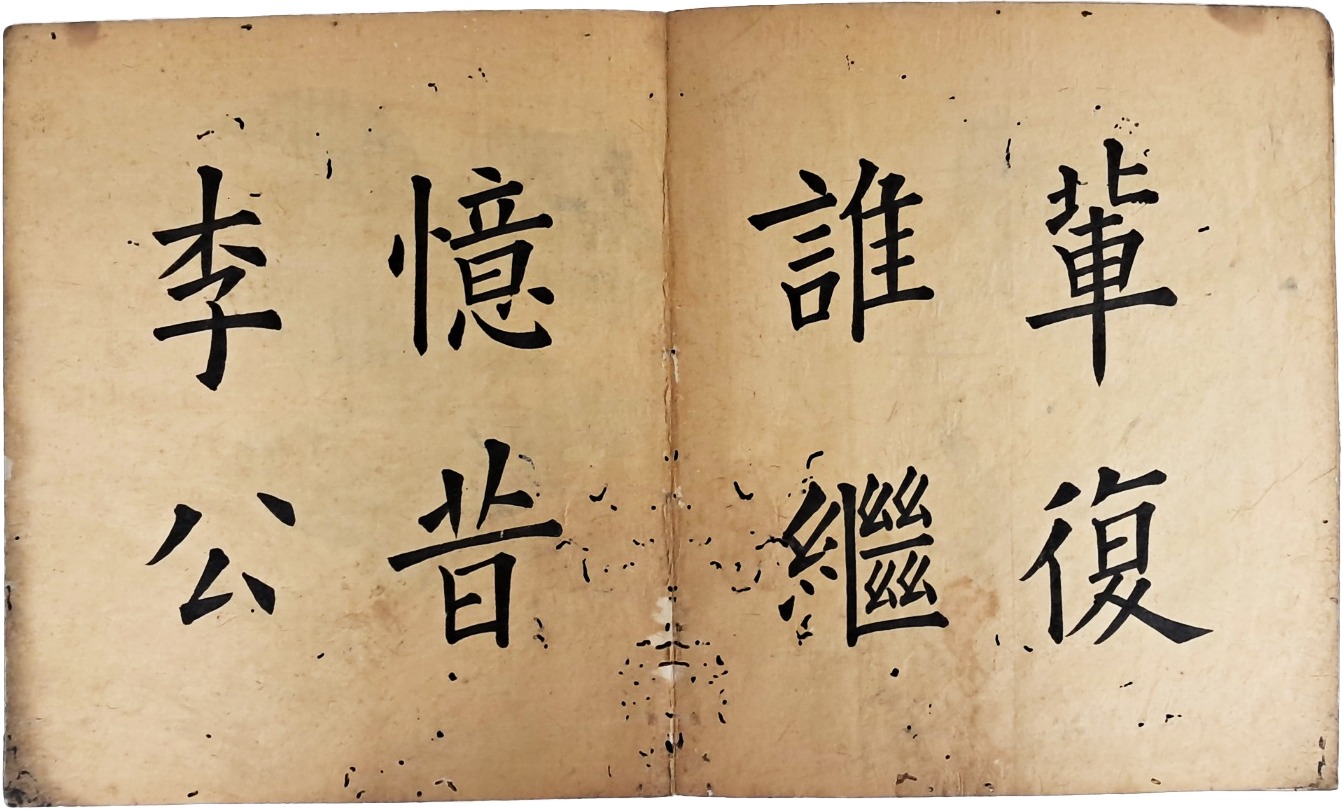 輩復
誰繼
憶昔
李公